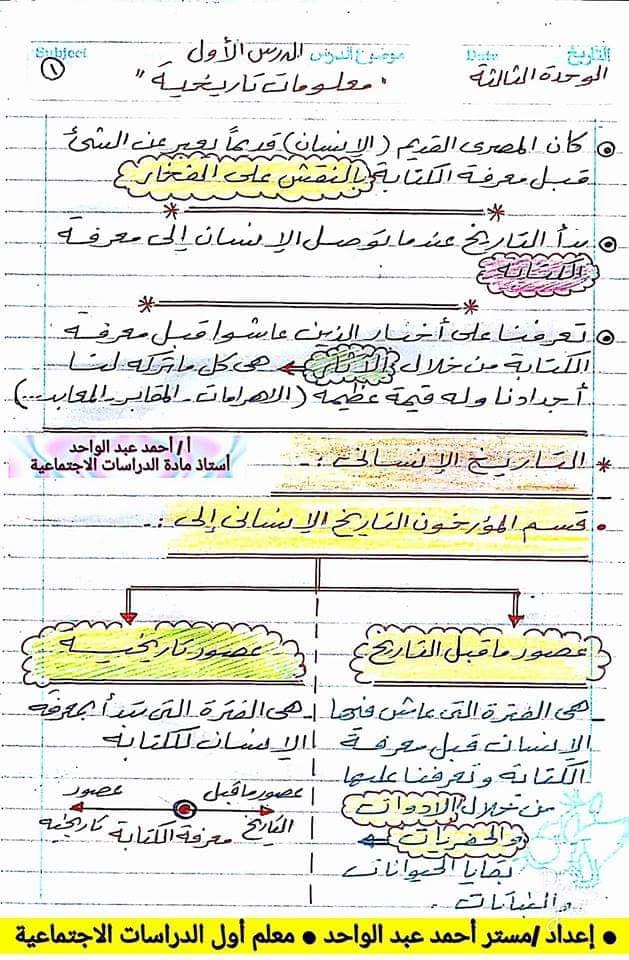 التاريخ Date موضوع الدرس Subject
الوحدة الثالثة الدرس الأول
"معلومات تاريخية" ١
كان المصرى القديم (الإنسان) قديماً يعبر عن الشئ
قبل معرفة الكتابة بالنقش على الفخار
بدأ التاريخ عندما توصل الإنسان إلى معرفة
الكتابة
تعرفنا على أخبار الذين عاشوا قبل معرفة
الكتابة من خلال الآثار هى كل ما تركه لنا
أجدادنا وله قيمة عظيمة (الاهرامات - المقابر - المعابد ...)
أ / أحمد عبد الواحد
أستاذ مادة الدراسات الاجتماعية
* التاريخ الإنسانى :-
• قسم المؤرخون التاريخ الإنسانى إلى :-
عصور ما قبل التاريخ
هى الفترة التى عاش فيها
الإنسان قبل معرفة
الكتابة وتعرفنا عليها
من خلال الأدوات
والحفريات
بقايا الحيوانات
والنباتات.
عصور تاريخية
هى الفترة التى تبدأ بمعرفة
الإنسان للكتابة
عصور ما قبل عصور
التاريخ معرفة الكتابة تاريخية
● إعداد /مستر أحمد عبد الواحد ● معلم أول الدراسات الاجتماعية